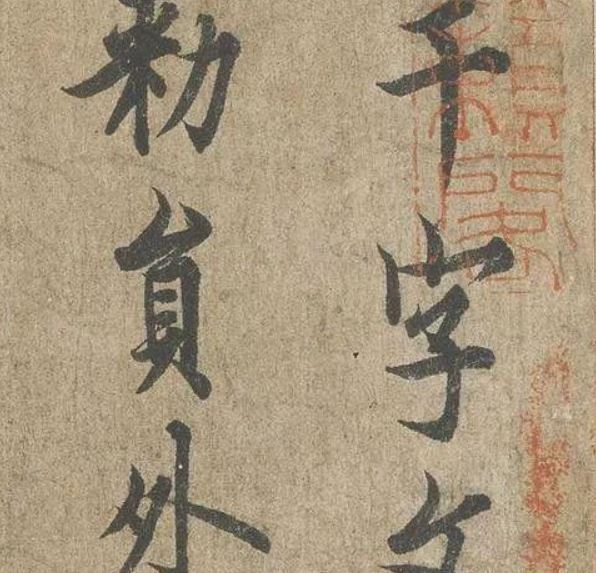 千字文
勑員外